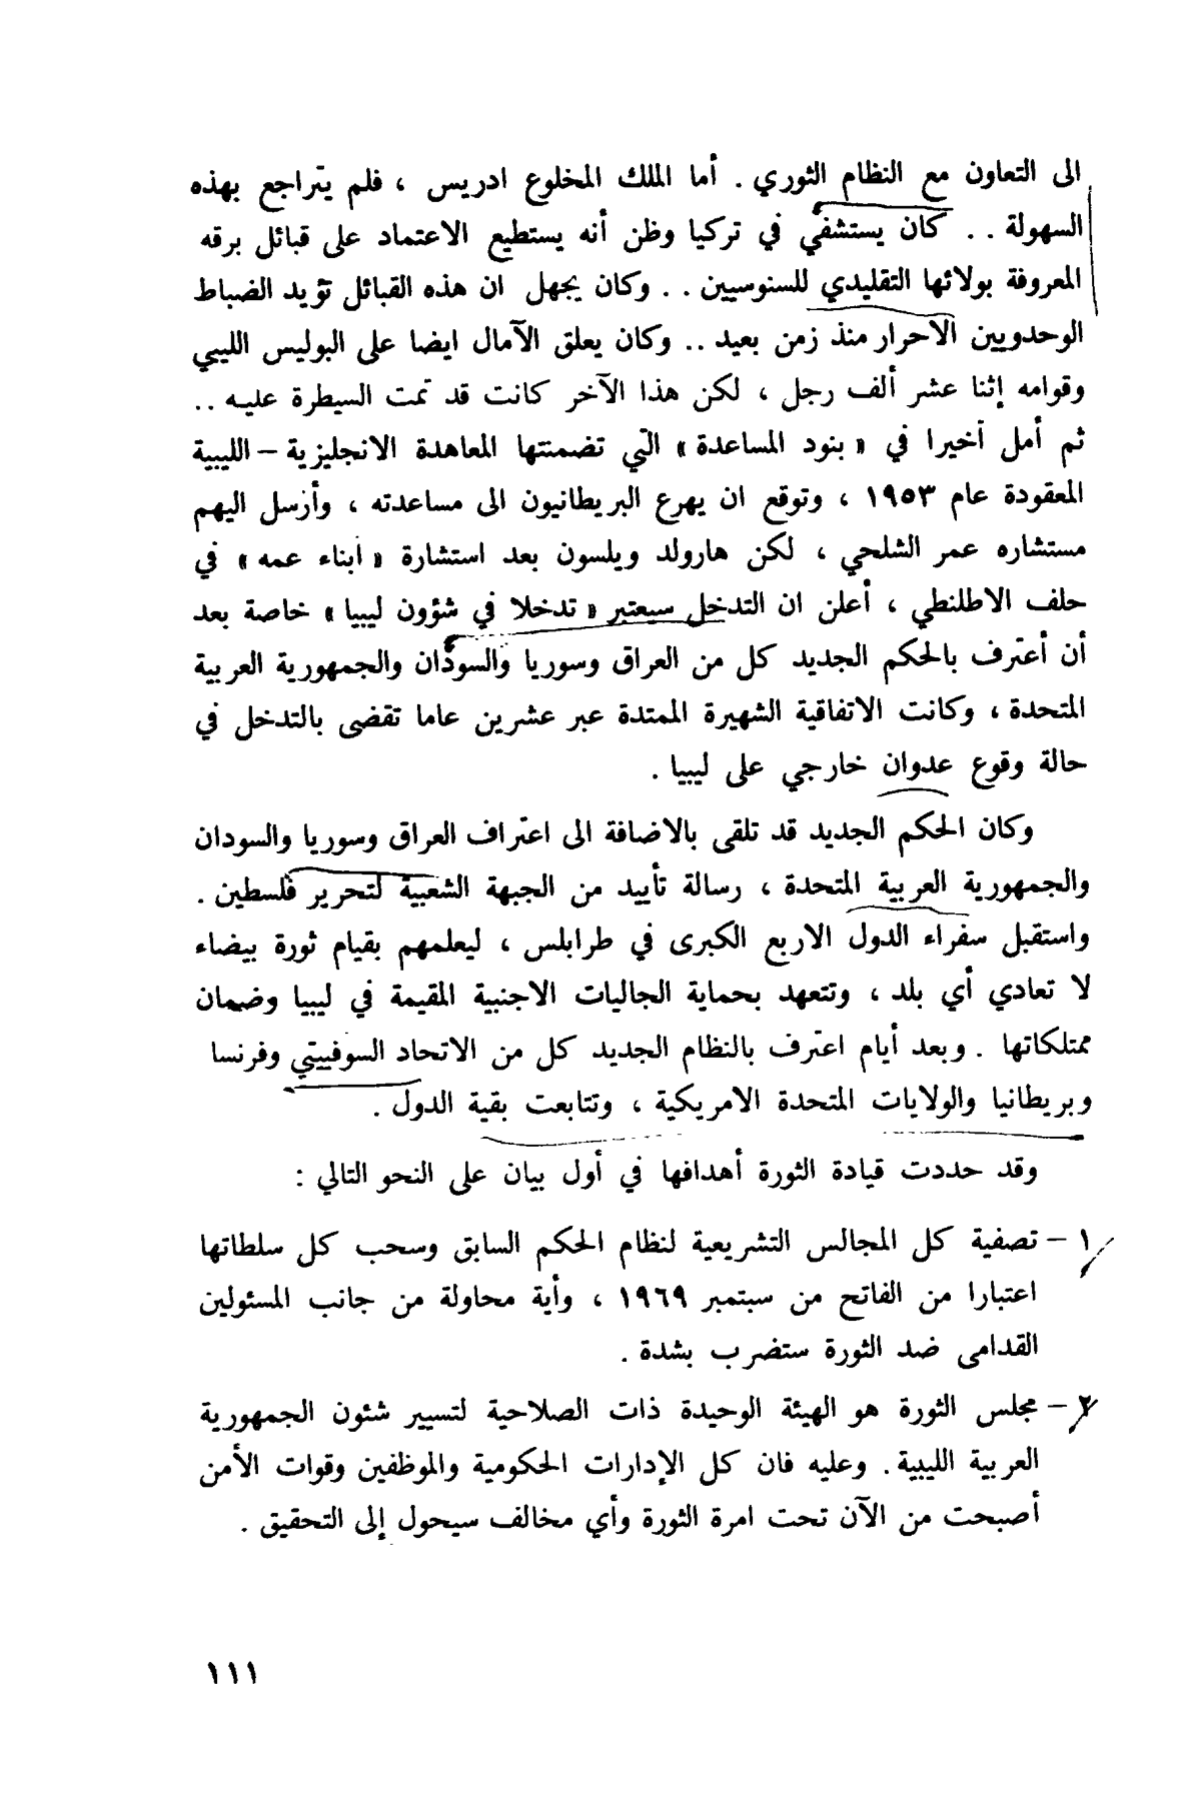 الى التعاون مع النظام الثوري . أما الملك المخلوع ادريس ، فلم يتراجع بهذه
السهولة . . كان يستشفي في تركيا وظن أنه يستطيع الاعتماد على قبائل برقه
المعروفة بولائها التقليدي للسنوسيين . . وكان يجهل ان هذه القبائل تؤيد الضباط
الوحدويين الاحرار منذ زمن بعيد .. وكان يعلق الآمال ايضا على البوليس الليبي
وقوامه إثنا عشر ألف رجل ، لكن هذا الآخر كانت قد تمت السيطرة عليه ..
ثم أمل أخيرا في « بنود المساعدة » التي تضمنتها المعاهدة الانجليزية – الليبية
المعقودة عام ١٩٥٣ ، وتوقع ان يهرع البريطانيون الى مساعدته ، وأرسل اليهم
مستشاره عمر الشلحي ، لكن هارولد ويلسون بعد استشارة « أبناء عمه » في
حلف الاطلنطي ، أعلن ان التدخل سيعتبر « تدخلا في شؤون ليبيا » خاصة بعد
أن أعترف بالحكم الجديد كل من العراق وسوريا والسودان والجمهورية العربية
المتحدة ، وكانت الاتفاقية الشهيرة الممتدة عبر عشرين عاما تقضى بالتدخل في
حالة وقوع عدوان خارجي على ليبيا .
وكان الحكم الجديد قد تلقى بالاضافة الى اعتراف العراق وسوريا والسودان
والجمهورية العربية المتحدة ، رسالة تأييد من الجبهة الشعبية لتحرير فلسطين .
واستقبل سفراء الدول الاربع الكبرى في طرابلس ، ليعلمهم بقيام ثورة بيضاء
لا تعادي أي بلد ، وتتعهد بحماية الجاليات الاجنبية المقيمة في ليبيا وضمان
ممتلكاتها . وبعد أيام اعترف بالنظام الجديد كل من الاتحاد السوفييتي وفرنسا
وبريطانيا والولايات المتحدة الامريكية ، وتتابعت بقية الدول .
وقد حددت قيادة الثورة أهدافها في أول بيان على النحو التالي :
١ – تصفية كل المجالس التشريعية لنظام الحكم السابق وسحب كل سلطاتها
اعتبارا من الفاتح من سبتمبر ١٩٦٩ ، وأية محاولة من جانب المسئولين
القدامى ضد الثورة ستضرب بشدة .
٢ – مجلس الثورة هو الهيئة الوحيدة ذات الصلاحية لتسيير شئون الجمهورية
العربية الليبية . وعليه فان كل الإدارات الحكومية والموظفين وقوات الأمن
أصبحت من الآن تحت امرة الثورة وأي مخالف سيحول إلى التحقيق .
١١١